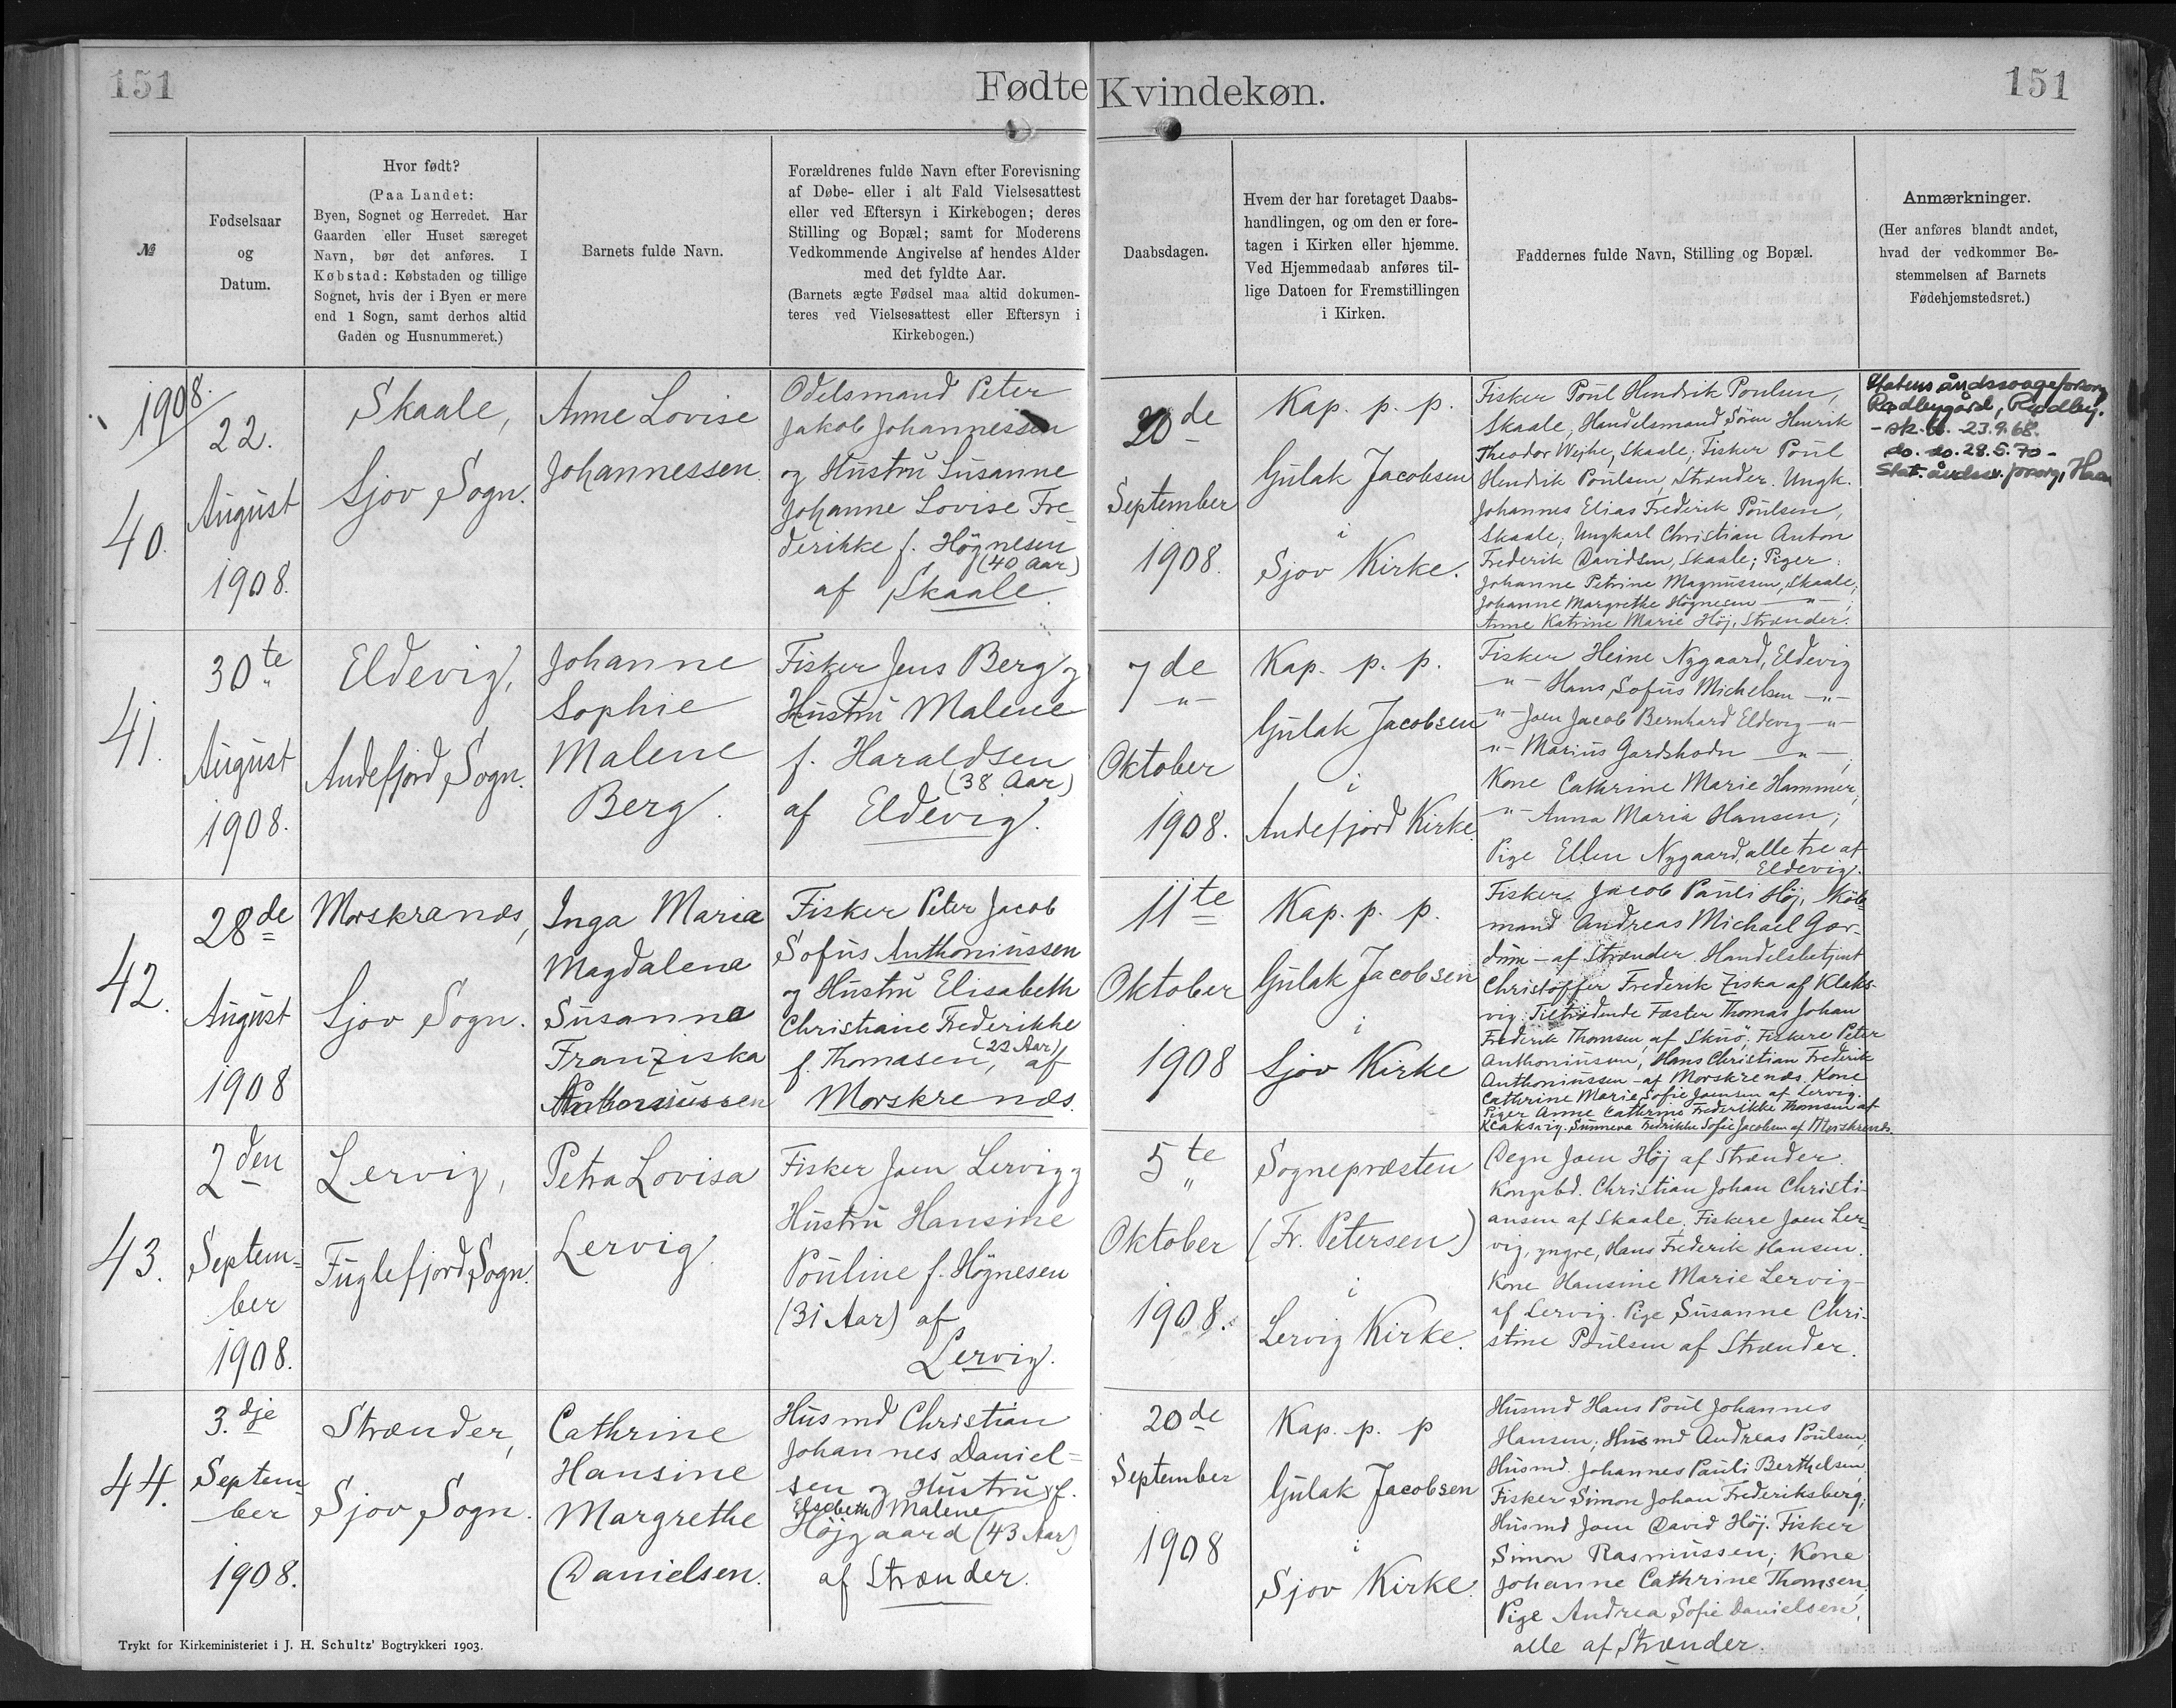 151
Fødte Kvindekøn.
151
№
Fødselsaar
og
Datum.
Hvor født?
(Paa Landet:
Byen, Sognet og Herredet. Har
Gaarden eller Huset særeget
Navn, bør det anføres. I
Købstad: Købstaden og tillige
Sognet, hvis der i Byen er mere
end 1 Sogn, samt derhos altid
Gaden og Husnummeret.)
Barnets fulde Navn.
Forældrenes fulde Navn efter Forevisning
af Døbe- eller i alt Fald Vielsesattest
eller ved Eftersyn i Kirkebogen; deres
Stilling og Bopæl; samt for Moderens
Vedkommende Angivelse af hendes Alder
med det fyldte Aar.
(Barnets ægte Fødsel maa altid dokumen-
teres ved Vielsesattest eller Eftersyn i
Kirkebogen.)
Daabsdagen.
Hvem der har foretaget Daabs-
handlingen, og om den er fore-
tagen i Kirken eller hjemme.
Ved Hjemmedaab anføres til-
lige Datoen for Fremstillingen
i Kirken.
Faddernes fulde Navn, Stilling og Bopæl.
Anmærkninger.
(Her anføres blandt andet,
hvad der vedkommer Be-
stemmelsen af Barnets
Fødehjemstedsret.)
1908.
40.
22.
August
1908.
Skaale,
Sjov Sogn.
Anne Lovise
Johannessen
Odelsmand Peter
Jakob Johannessen
og Hustru Susanne
Johanne Lovise Fre-
derikke f. Högnesen
(40 Aar)
af Skaale.
20de
September
1908.
Kap. p. p.
Gulak Jacobsen
i
Sjov Kirke.
Fisker Poul Hendrik Poulsen,
Skaale, Handelsmand Sören Henrik
Theodor Wejhe, Skaale; Fisker Poul
Hendrik Poulsen, Strænder. Ungk.
Johannes Elias Frederik Poulsen,
Skaale; Ungkarl Christian Anton
Frederik Davidsen, Skaale; Piger:
Johanne Petrine Magnussen, Skaale;
Johanne Margrethe Högnesen — " — ;
Anne Katrine Marie Höj, Strænder.
Statens åndssvageforsorg
Rødbygård, Rødby.
23.9.68.
do. do. 28.5.70 -
41.
30te
August
1908.
Eldevig,
Andefjord Sogn.
Johanne
Sophie
Malene
Berg.
Fisker Jens Berg og
Hustru Malene
f. Haraldsen
(38 Aar)
af Eldevig.
7de
Oktober
1908.
Kap. p. p.
Gulak Jacobsen
i
Andefjord Kirke.
Fisker Heine Nygaard, Eldevig
" — Hans Sofus Michelsen — " —
" — Joen Jacob Bernhard Eldevig — " —
" — Marius Gardshodn — " — ;
Kone Cathrine Marie Hammer;
" — Anna Maria Hansen;
Pige Ellen Nygaard, alle tre af
Eldevig.
42.
28de
August
1908
Morskranæs,
Sjov Sogn.
Inga Maria
Magdalena
Susanna
Franziska
Anthoniussen
Fisker Peter Jacob
Sofus Anthoniussen
og Hustru Elisabeth
Christiane Frederikke
f. Thomasen, (22 Aar) af
Morskrenæs.
11te
Oktober
1908
Kap. p. p.
Gulak Jacobsen
i
Sjov Kirke
Fisker Jacob Pauli Höj, Köb-
mand Andreas Michael Gar-
dum — af Strænder. Handelsbetjent
Christoffer Frederik Ziska af Klaks-
vig. Tiltrædende Faster Thomas Johan
Frederik Thomsen af Skuö, Fiskere Peter
Anthoniussen, Hans Christian Frederik
Anthoniussen — af Morskrenæs. Kone
Cathrine Marie Sofie Joensen af Lervig.
Piger Anne Cathrine Frederikke Thomsen af
Klaksvig. Sunneva Fredrikke Sofie Jacobsen af Morskrenæs.
43.
2den
Septem-
ber
1908.
Lervig,
Fuglefjord Sogn.
Petra Lovisa
Lervig.
Fisker Joen Lervig og
Hustru Hansine
Pouline f. Högnesen
(31 Aar) af
Lervig.
5te
Oktober
1908.
Sognepræsten
(Fr. Petersen)
i
Lervig Kirke.
Degn Joen Höj af Strænder.
Kongsbd. Christian Johan Christi-
ansen af Skaale. Fiskere Joen Ler-
vig, yngre, Hans Frederik Hansen.
Kone Hansine Marie Lervig —
af Lervig. Pige Susanne Chri-
stine Poulsen af Strænder.
44.
3.dje
Septem-
ber
1908.
Strænder,
Sjov Sogn.
Cathrine
Hansine
Margrethe
Danielsen.
Husmd Christian
Johannes Daniel-
sen og Hustru f.
Elsebeth Malene
Højgaard (43 Aar)
af Strænder.
20de
September
1908
Kap. p. p
Gulak Jacobsen
i
Sjov Kirke.
Husmd Hans Poul Johannes
Hansen; Husmd Andreas Poulsen;
Husmd. Johannes Pauli Berthelsen,
Fisker Simon Johan Frederiksberg;
Husmd Joen David Höj. Fisker
Simon Rasmussen; Kone
Johanne Cathrine Thomsen,
Pige Andrea Sofie Danielsen,
alle af Strænder.
Trykt for Kirkeministeriet i J. H. Schultz' Bogtrykkeri 1903.